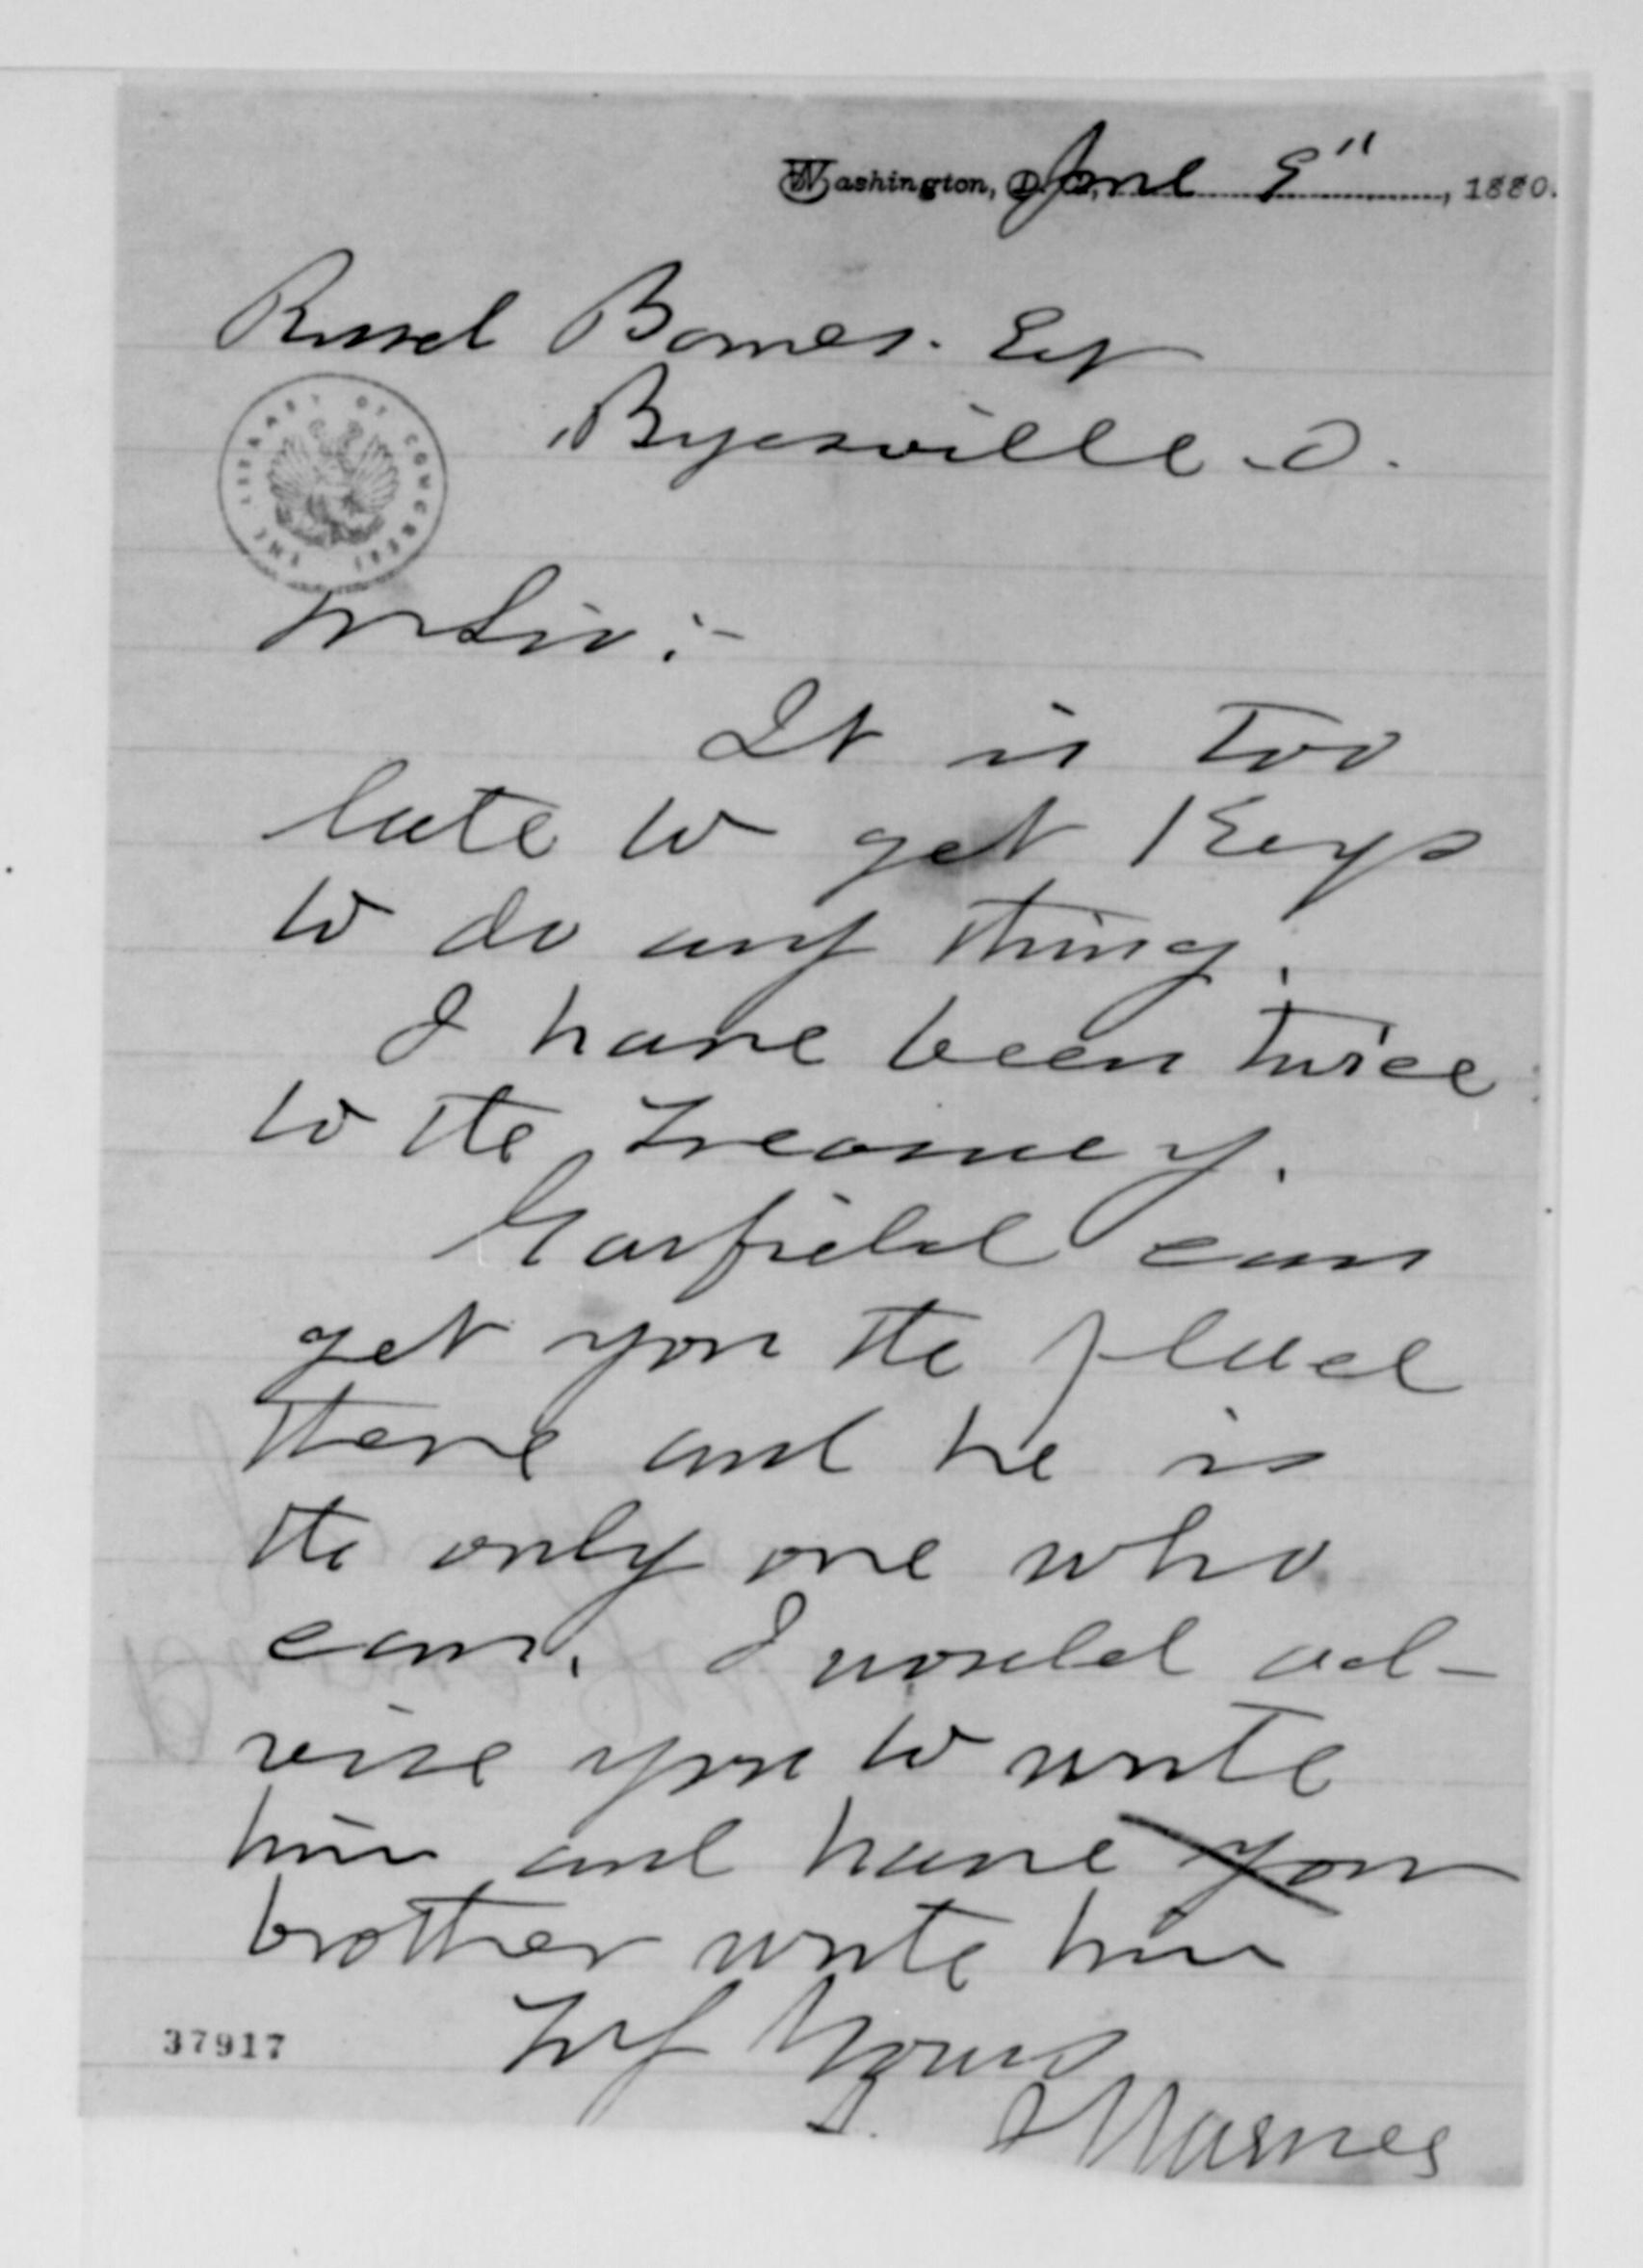 Washington, D.C., June 9", 1880.
Russel Barnes. Esq
Byesville. O.
THE LIBRARY OF CONGRESS
M Sir:-
It is too
late to get Keys
to do any thing.
I have been twice
to the Treasury.
Garfield can
get you the place
there and he is
the only one who
can. I would ad-
vise you to write
him and have your
brother write him
Try Yours
Warner
37917